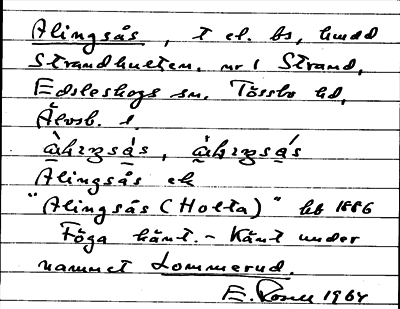 Alingsås, t el. bs, hmdd
Strandhulten. nr 1 Strand,
Edsleskogs sn. Tössbo hd,
Älvsb. l.
Alingsås ek
"Alingsås (Holta)" hb 1886
Föga känt. - Känt under
namnet Lommerud.
E. 1964